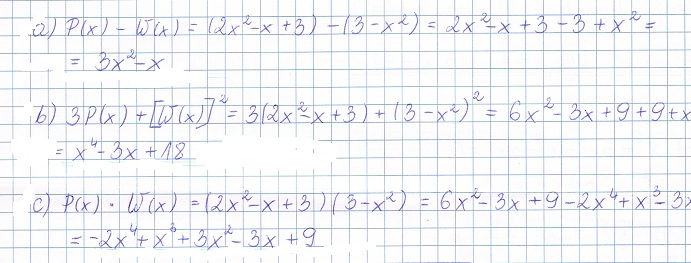 a) P(x) - W(x) = (2x²-x+3) - (3-x²) = 2x²-x+3-3+x² =
= 3x²-x
b) 3P(x) + [W(x)]² = 3(2x²-x+3) + (3-x²)² = 6x²-3x+9+9+x
= x⁴-3x+18
c) P(x) · W(x) = (2x²-x+3)(3-x²) = 6x²-3x+9-2x⁴+x³-3x
= -2x⁴+x³+3x²-3x+9